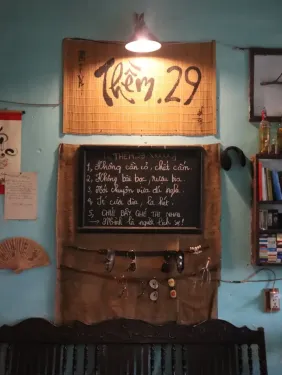 Thềm.29
1, Không cần cỏ, chất cấm.
2, Không bài bạc, rượu bia.
3, Nói chuyện vừa đủ nghe.
4, Ít cười đùa, la hét.
5, CHỬI BẬY GHÉ TAI NHAU
Mình là người lịch sự!